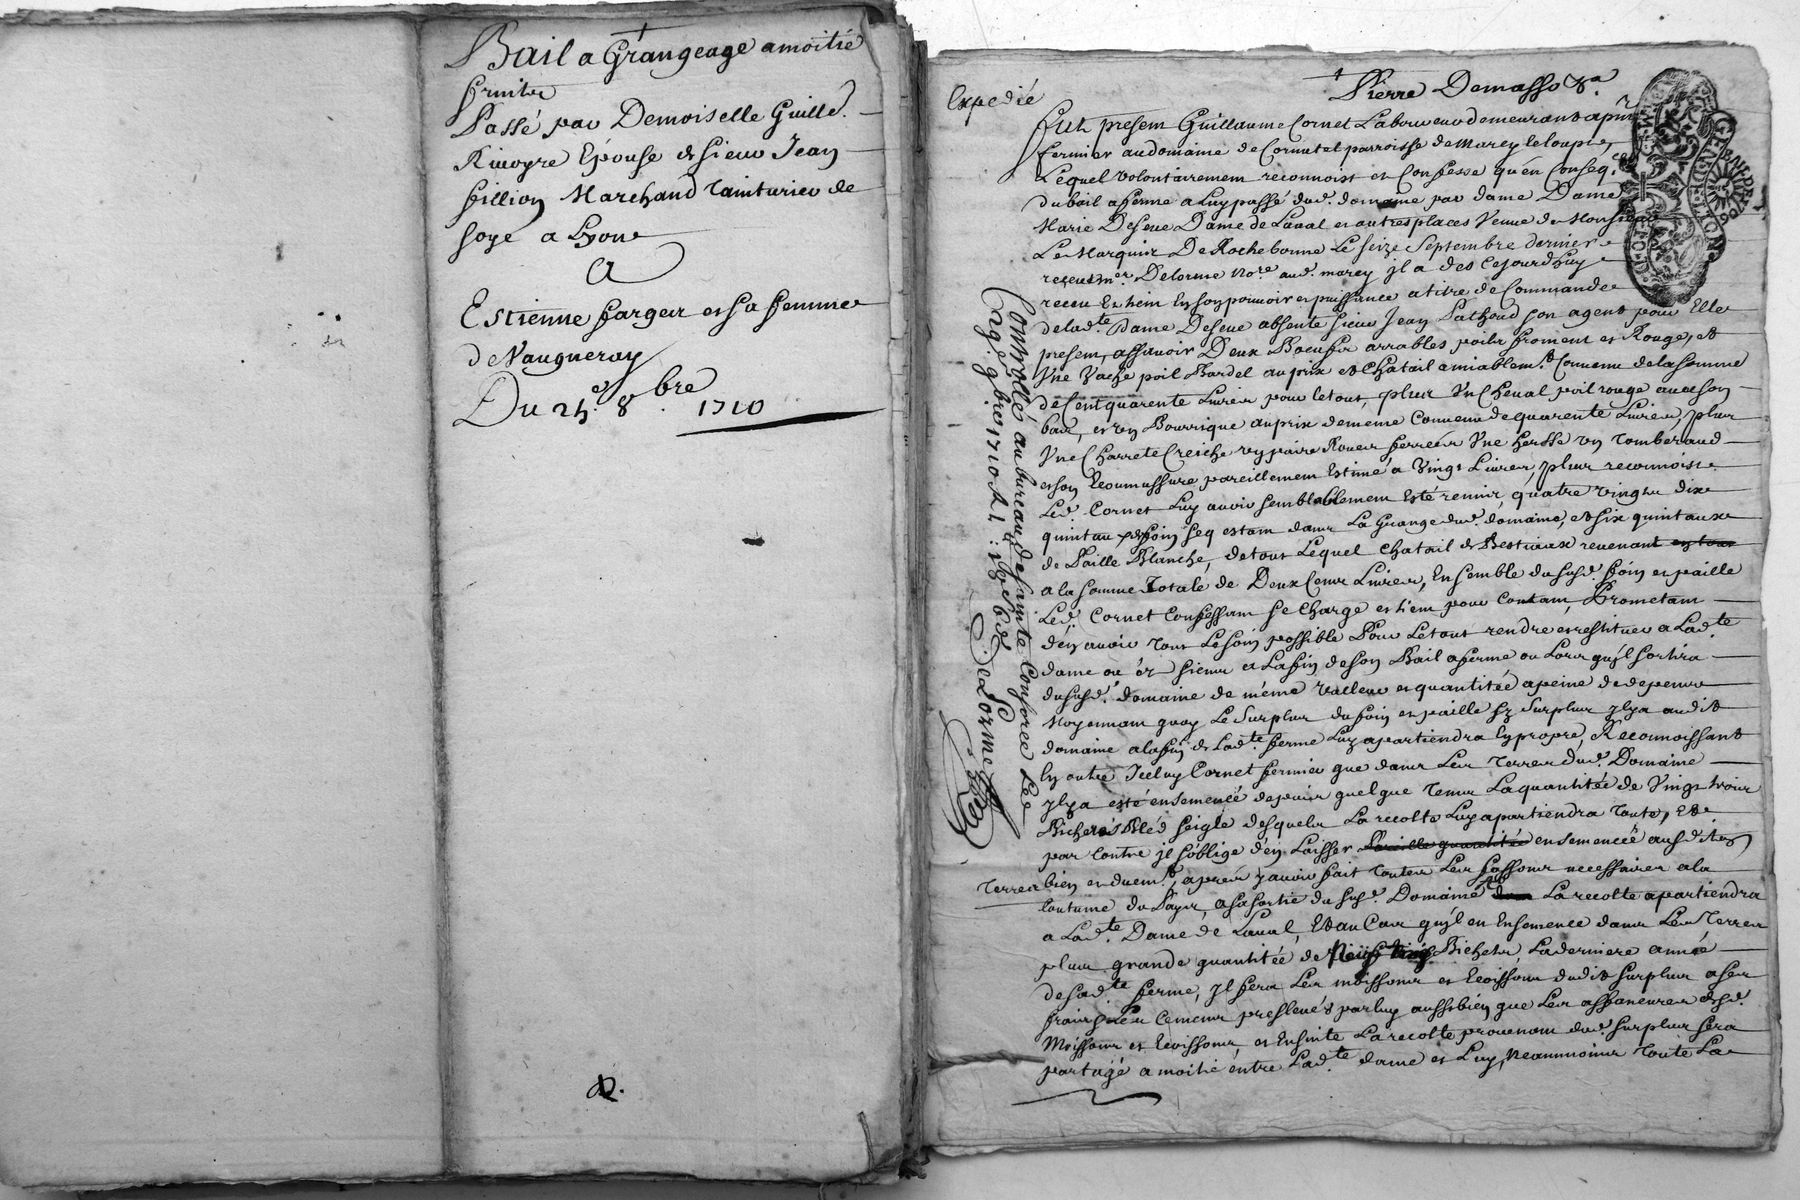 Bail a Grangeage amoitié
fruits
Passé par Demoiselle Guille.
Rivoyre Epouse de sieur Jean
fillion Marchand Tainturier de
soye a Lyon
A
Estienne fargeir et sa femme
de Vaugneray
Du 25e 8bre. 1710
Expedié
Pierre Demasso
fut present Guillaume Cornet Laboureur demeurant a
fermier au domaine de Cornutel parroisse de Marcy le loup
Lequel volontairement reconnoist et Confesse qu'en Conseq.ce
du bail a ferme a Luy passé dud. domaine par dame Dame
Marie Deseve Dame de Laval et autres places Veuve de Monsieur
Le Marquis De Rochebonne Le seize Septembre dernier
receu Me. Delorme No.re aud. marcy jl a des Cejourdhuy
receu En bon pouvoir et puissance a titre de Commande
de lad.te Dame Deseve absente sieur Jean Pathoud son agent pour Elle
present, assavoir Deux Boeufs arrables poils froment et Rouge, et
Vne Vache poil Bardel au prix et Chatail amiablem.t Convenu de la somme
de Cent quarente Livres pour le tout, plus Vn Cheval poil rouge avec son
bat, et vn Bourrique au prix de meme Convenu de quarente Livres, plus
Vne Charrete Creiche vn paire Roues ferrées Vne herse vn Tomberaud
et son pareillement Estimé a Vingt Livres, plus reconnoist
Led. Cornet Luy avoir semblablement Esté remis, quatre vingt dix
quintaux foin seq estant dans La Grange dud. domaine, et six quintaux
de Paille Blanche, de tout Lequel Chatail de Bestiaux revenant en tout
a la somme Totale de Deux Cents Livres, Ensemble du susd. foin et paille
Led. Cornet Confessant se Charge et tient pour Contant, Prometant
d'en avoir tout Le soin possible Pour Le tout rendre et restituer a Lad.te
dame ou es siens a La fin de son Bail a ferme ou Lors qu'jl sortira
du susd. domaine de même valleur et quantitée a peine de depens
Moyennant quoy Le Surplus du foin et paille sy Surplus jl y a audit
domaine a la fin de Lad.te ferme Luy apartiendra En propre, Reconnoissant
En outre Icelluy Cornet fermier que dans Les Terres dud. Domaine
jl y a esté ensemencé depuis quelque Temps La quantitée de Vingt trois
Bichets Bled seigle desquels La recolte Luy apartiendra toute, Et
par Contre jl s'oblige d'en Laisser Pareille quantitée ensemencée ausdites
Terres bien et duem.t, apres y avoir fait toutes Les fassons necessaires a la
Coutume du Pays, a sa sortie du susd. Domaine La recolte apartiendra
a Lad.te Dame de Laval, Et au Cas qu'jl en Ensemence dans Les Terres
plus grande quantitée de Bichets, La derniere année
de sad.te ferme, jl fera Les moissons et Ecoissons dudit surplus a ses
frais Les Cemens preslevés par luy aussi bien que Les affaneures desd.
Moissons et Ecoissons, et Ensuite La recolte provenant dud. surplus sera
partagé a moitié entre Lad.te dame et Luy, Neaumoins toute La
Controllé au bureau de sainte Conforce Le
9bre 1710
Delorme